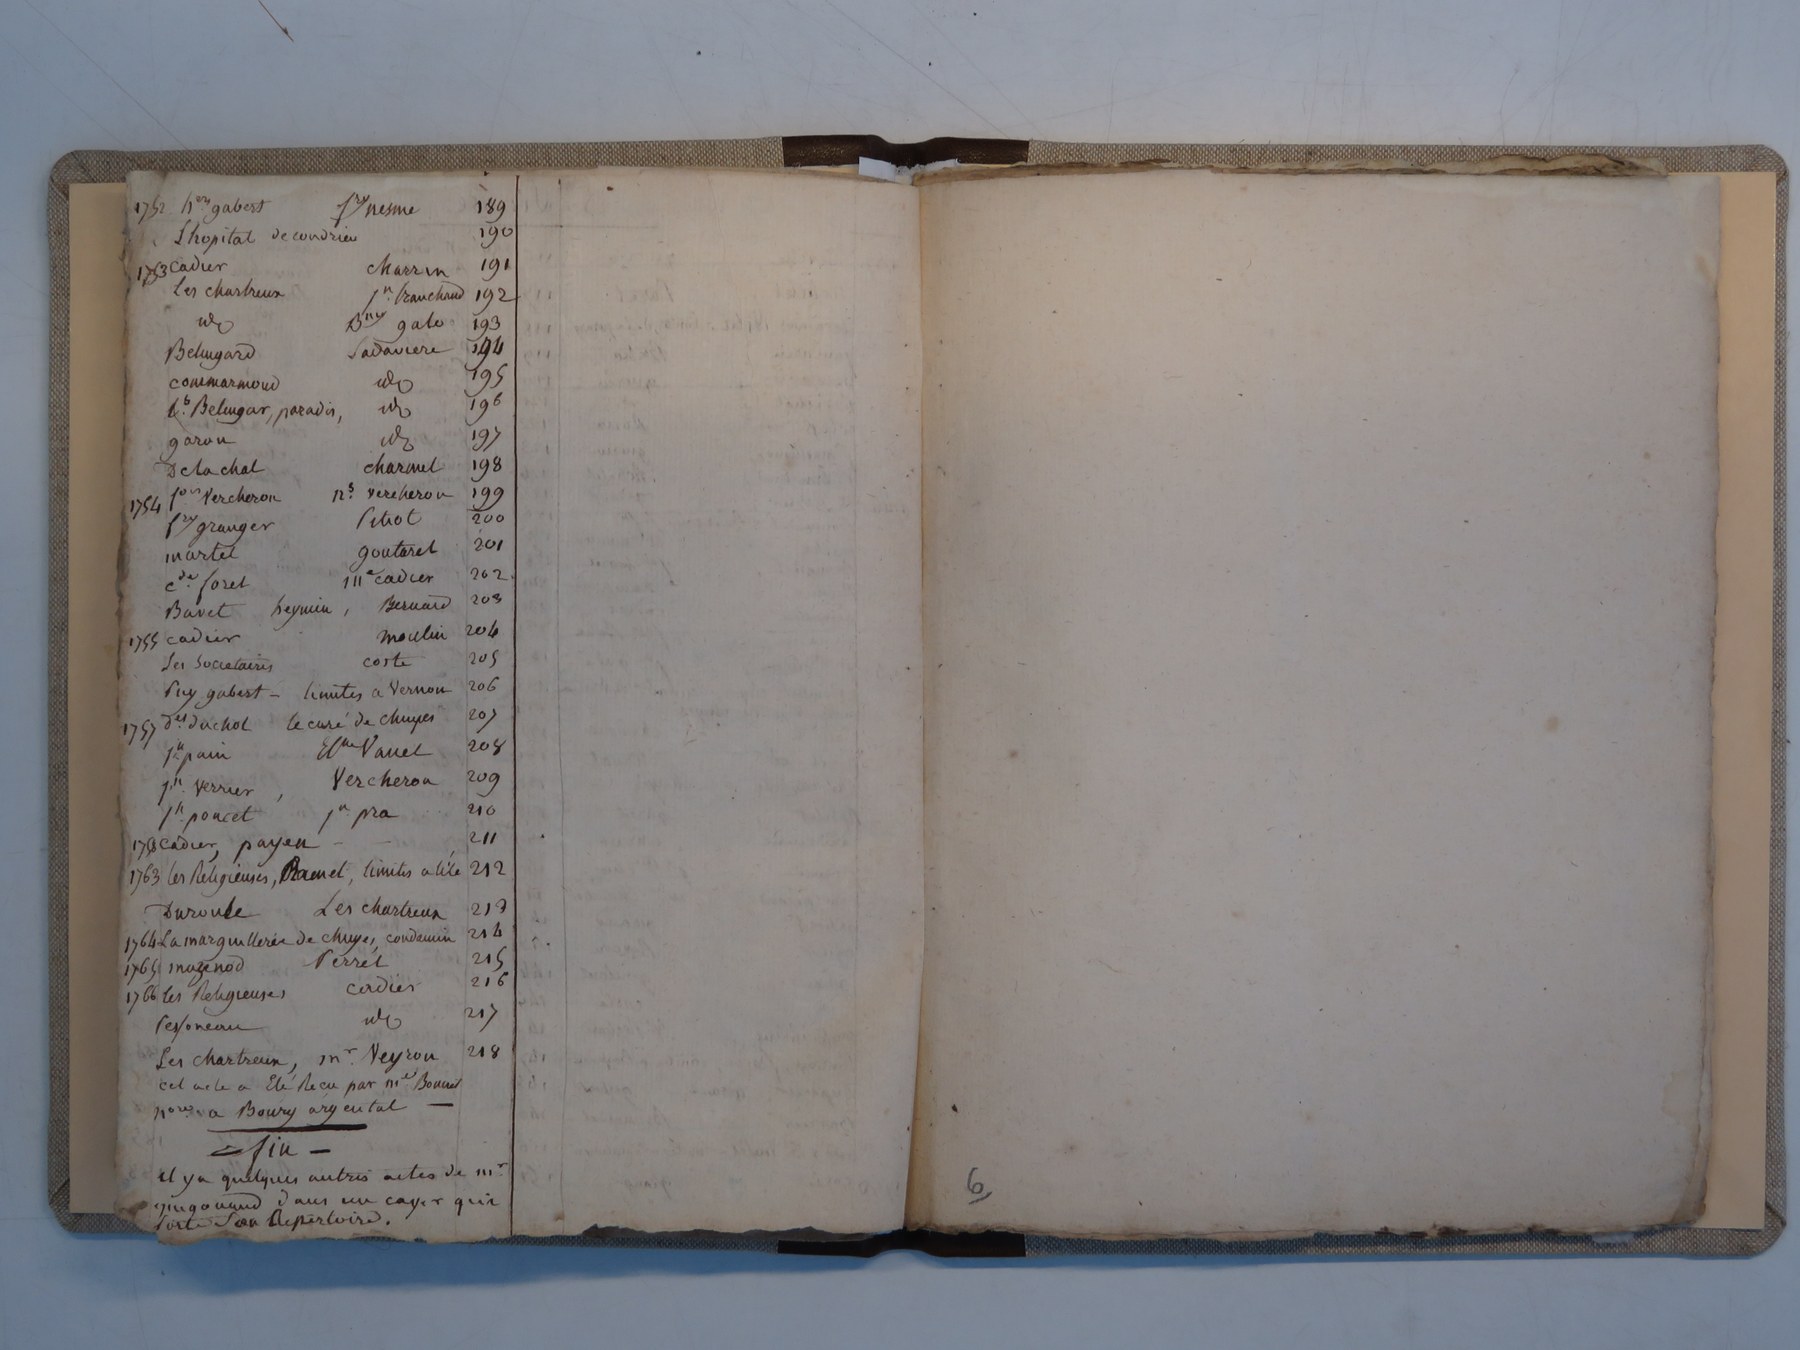 1752 h.on gabert fcs nesme 189
L'hopital de condrieu 190
1753 cadier charrin 191
Les chartreux jn. tranchand 192
ido gale 193
Belingard Ladaviere 194
commarmond ido 195
Belingar, paradis, ido 196
garon ido 197
Delachal charmet 198
1754 Vercheron ns. vercheron 199
granger Pitiot 200
martel goutarel 201
foret cadier 202
Bavet heymin, Bernard 203
1755 cadier moulin 204
Les societaires coste 205
Puy gabert - limites a Vernon 206
1757 duchol le curé de chuyes 207
jn. pain Vanel 208
jn. Verrier, Vercheron 209
jn. poncet jn. pra 210
cadier, payen - - 211
1763 les Religieuses, limites a l'ile 212
Duroule Les chartreux 213
1764 La marguillerie de chuyes, condamin 214
1765 mazenod Perret 215
1766 les Religieuses cordier 216
Pessoneau ido 217
Les chartreux, mr. Veyron 218
cet acte a Eté Recu par me Bonnet
nore. a Bourg argental —
= fin —
il y a quelques autres actes de mr
gingouand dans un cayer qui
porte son Repertoire.
6